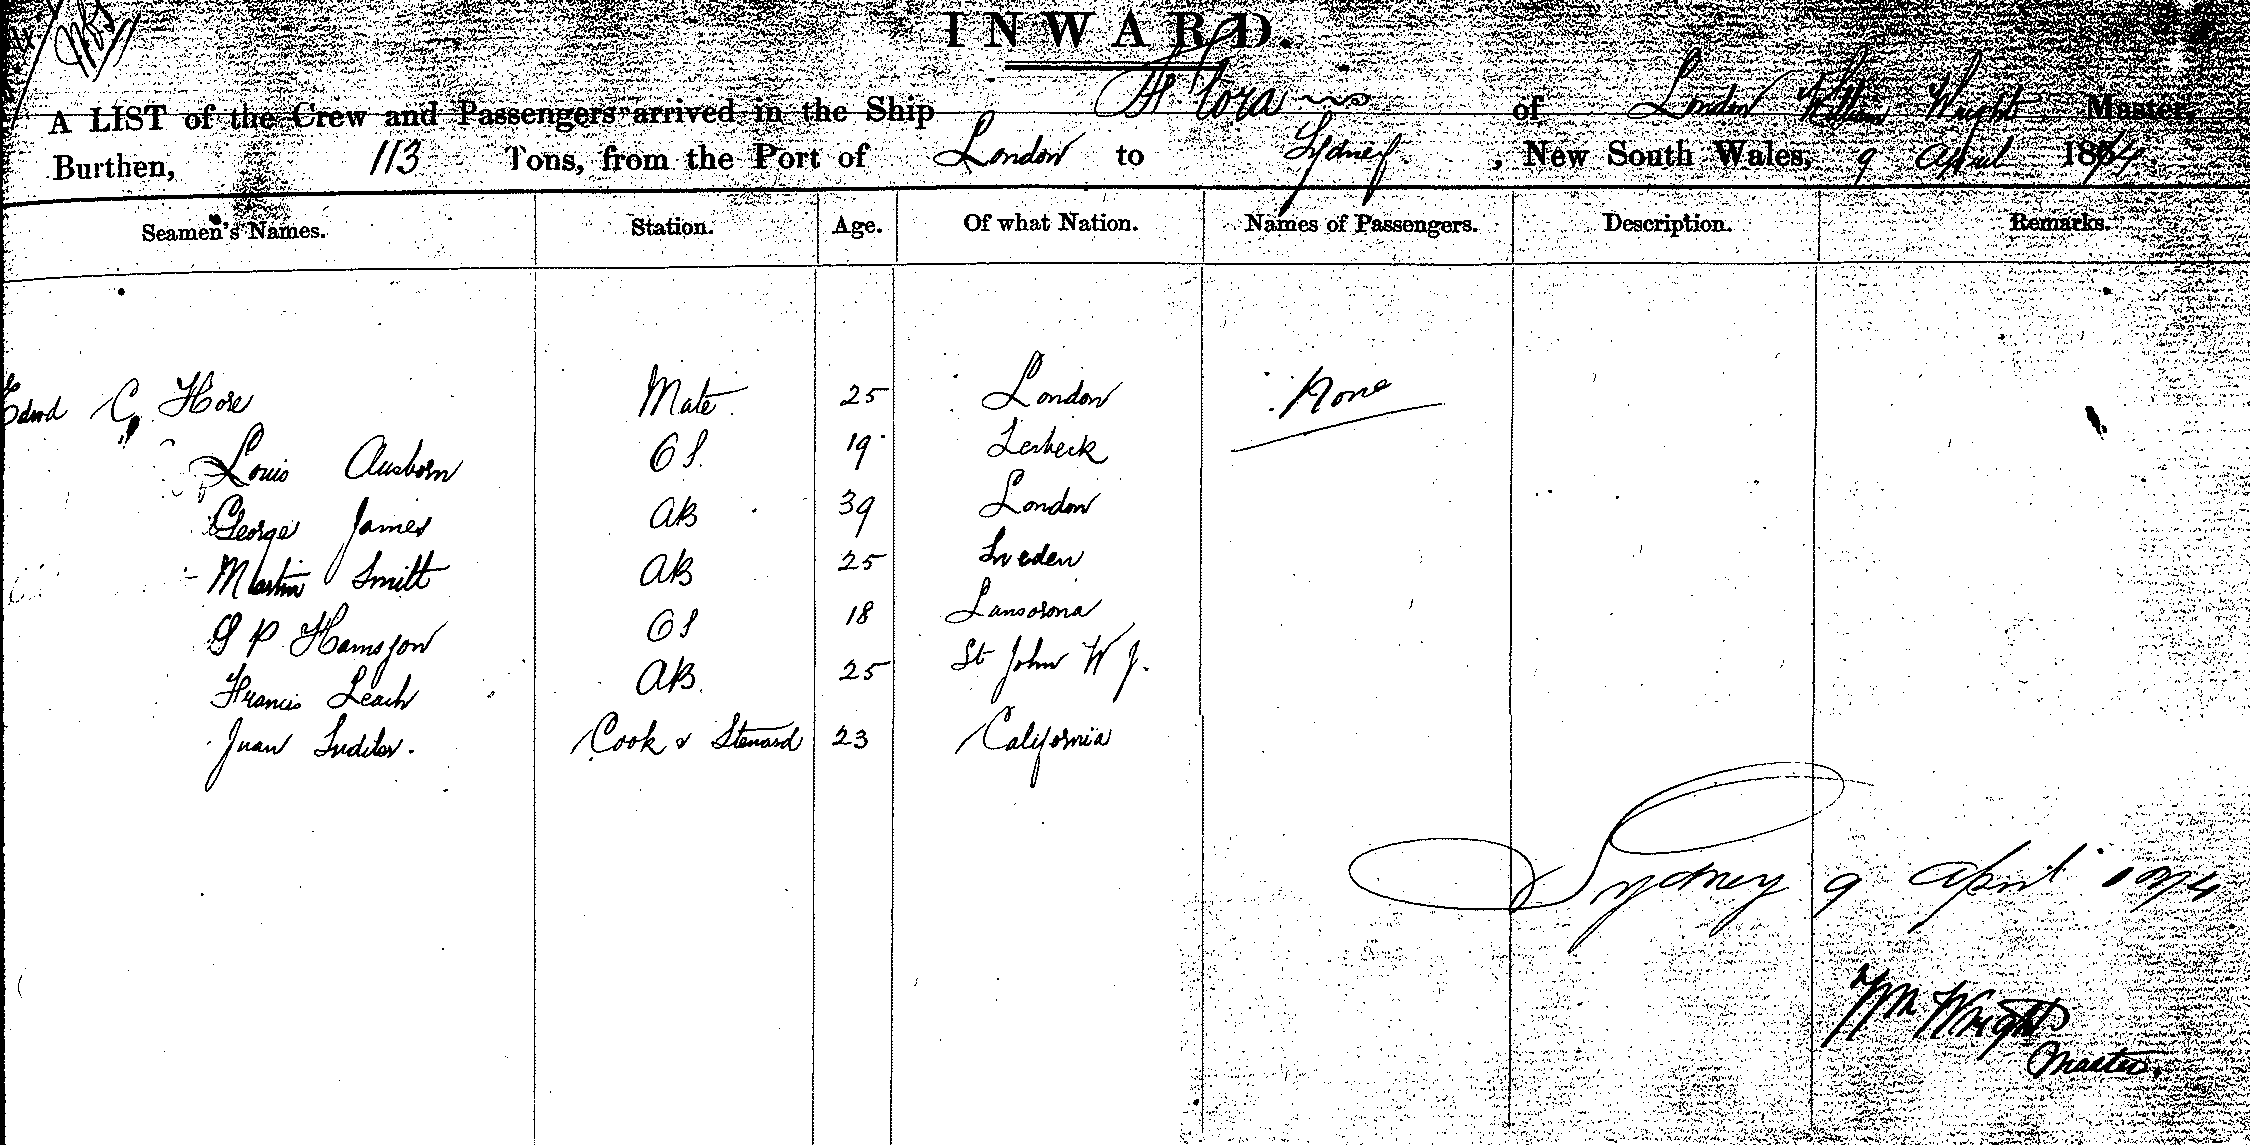 INWARD.
A LIST of the Crew and Passengers arrived in the Ship of London William Wright Master,
Burthen, 113 Tons, from the Port of London to Sydney, New South Wales, 9 April 1874
Seamen's Names. Station. Age. Of what Nation. Names of Passengers. Description. Remarks.
Edwd C Hore Mate 25 London None
Louis Ausborn OS. 19 Lerbeck
George James AB 39 London
Martin Smitt AB 25 Sweden
P OS 18
Francis Leach AB. 25 St John
Juan Cook & Steward 23 California
Sydney 9 April 1874
Wm Wright
Master.